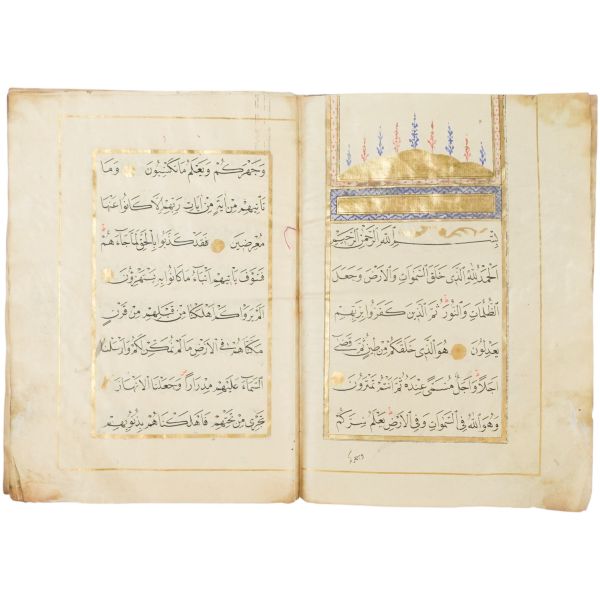 بِسْمِ اللهِ الرَّحْمٰنِ الرَّحِيمِ
اَلْحَمْدُ لِلّٰهِ الَّذِى خَلَقَ السَّمٰوَاتِ وَالْاَرْضَ وَجَعَلَ
الظُّلُمَاتِ وَالنُّورَ ثُمَّ الَّذِينَ كَفَرُوا بِرَبِّهِمْ
يَعْدِلُونَ هُوَ الَّذِى خَلَقَكُمْ مِنْ طِينٍ ثُمَّ قَضٰى
اَجَلًا وَاَجَلٌ مُسَمًّى عِنْدَهُ ثُمَّ اَنْتُمْ تَمْتَرُونَ
وَهُوَ اللهُ فِى السَّمٰوَاتِ وَفِى الْاَرْضِ يَعْلَمُ سِرَّكُمْ
وَجَهْرَكُمْ وَيَعْلَمُ مَا تَكْسِبُونَ وَمَا
تَأْتِيهِمْ مِنْ اٰيَةٍ مِنْ اٰيَاتِ رَبِّهِمْ اِلَّا كَانُوا عَنْهَا
مُعْرِضِينَ فَقَدْ كَذَّبُوا بِالْحَقِّ لَمَّا جَاءَهُمْ
فَسَوْفَ يَأْتِيهِمْ اَنْبَاءُ مَا كَانُوا بِهِ يَسْتَهْزِؤُنَ
اَلَمْ يَرَوْا كَمْ اَهْلَكْنَا مِنْ قَبْلِهِمْ مِنْ قَرْنٍ
مَكَّنَّاهُمْ فِى الْاَرْضِ مَا لَمْ نُمَكِّنْ لَكُمْ وَاَرْسَلْنَا
السَّمَاءَ عَلَيْهِمْ مِدْرَارًا وَجَعَلْنَا الْاَنْهَارَ
تَجْرِى مِنْ تَحْتِهِمْ فَاَهْلَكْنَاهُمْ بِذُنُوبِهِمْ